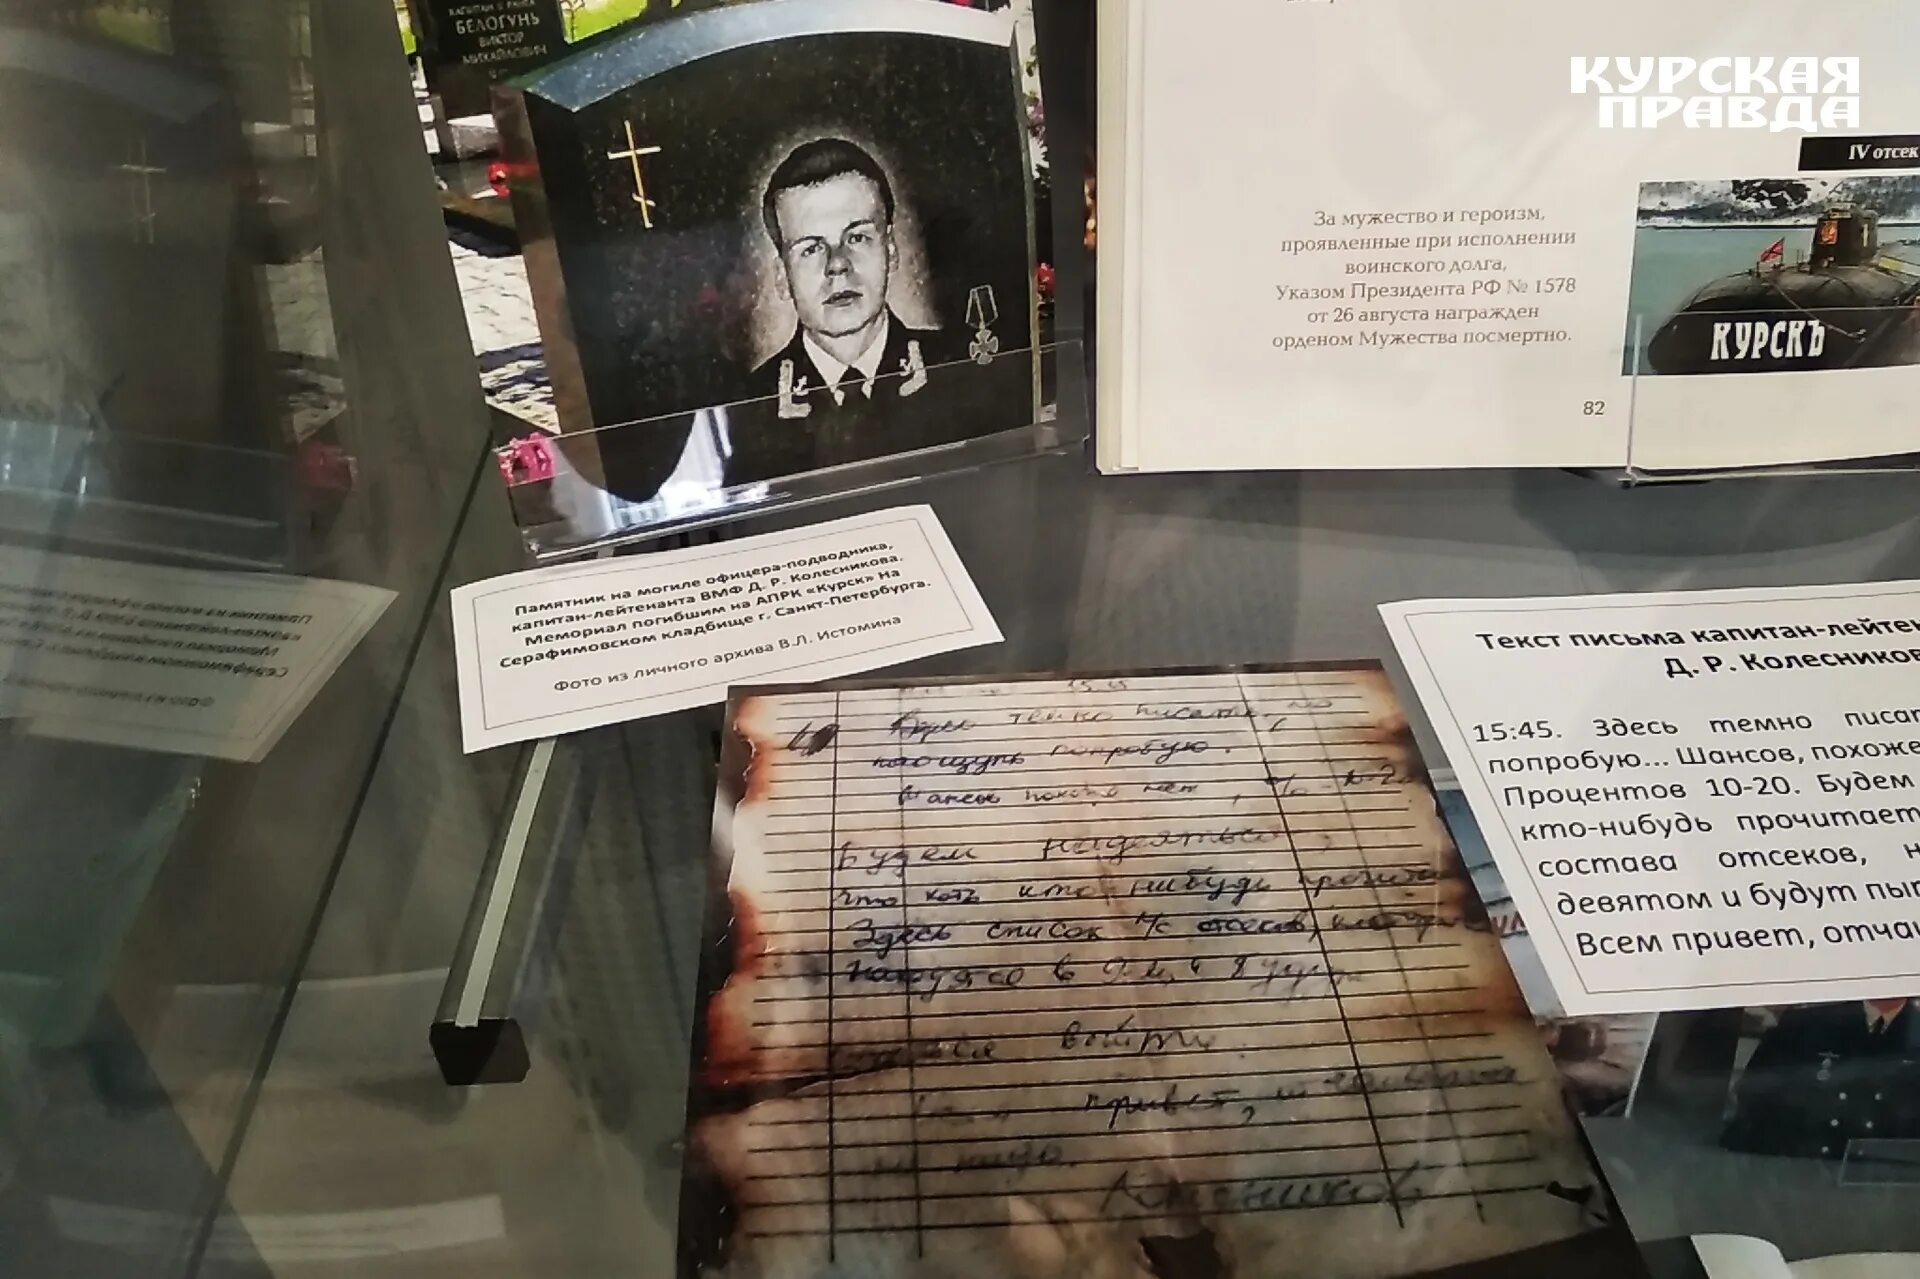 КАПИТАН 1 РАНГА
БЕЛОГУНЬ
ВИКТОР
МИХАЙЛОВИЧ
КУРСКАЯ
ПРАВДА
IV отсек
За мужество и героизм,
проявленные при исполнении
воинского долга,
Указом Президента РФ № 1578
от 26 августа награжден
орденом Мужества посмертно.
82
КУРСКЪ
Памятник на могиле офицера-подводника,
капитан-лейтенанта ВМФ Д. Р. Колесникова.
Мемориал погибшим на АПРК «Курск» на
Серафимовском кладбище г. Санкт-Петербурга.
Фото из личного архива В.Л. Истомина
Текст письма капитан-лейтен
Д. Р. Колесников
15:45. Здесь темно писат
попробую... Шансов, похоже
Процентов 10-20. Будем
кто-нибудь прочитает
состава отсеков, н
девятом и будут пыт
Всем привет, отчаи
15.45
Здесь темно писать, но
наощупь попробую.
Шансов похоже нет, %
Будем надеяться,
что хоть кто-нибудь прочитает
Здесь список л/с отсеков,
находятся в 9-м и будут
выйти.
привет, отчаиваться
не надо.
Колесников